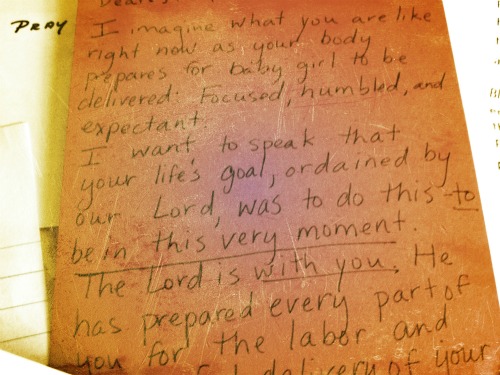 PRAY
I imagine what you are like
right now as your body
prepares for baby girl to be
delivered: Focused, humbled, and
expectant.
I want to speak that
your life's goal, ordained by
our Lord, was to do this - to
be in this very moment.
The Lord is with you. He
has prepared every part of
you for the labor and
delivery of your